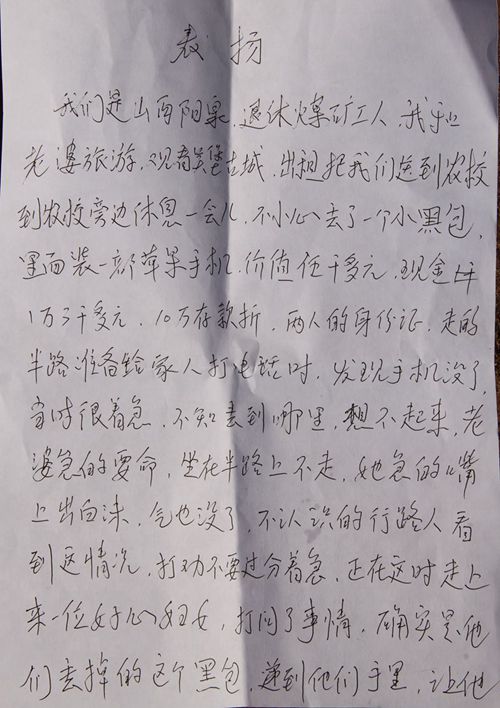 表扬
我们是山西阳泉、退休煤矿工人、我和
老婆旅游、观看吴堡古城、出租把我们送到农校
到农校旁边休息一会儿、不小心丢了一个小黑包、
里面装一部苹果手机、价值伍千多元、现金
1万3千多元、10万存款折、两人的身份证、走的
半路准备给家人打电话时、发现手机没了、
当时很着急、不知丢到哪里、想不起来、老
婆急的要命、坐在半路上不走、她急的嘴
上出白沫、气也没了、不认识的行路人看
到这情况、打劝不要过分着急、正在这时走上
来一位好心妇女、打问了事情、确实是他
们丢掉的这个黑包、递到他们手里、让他